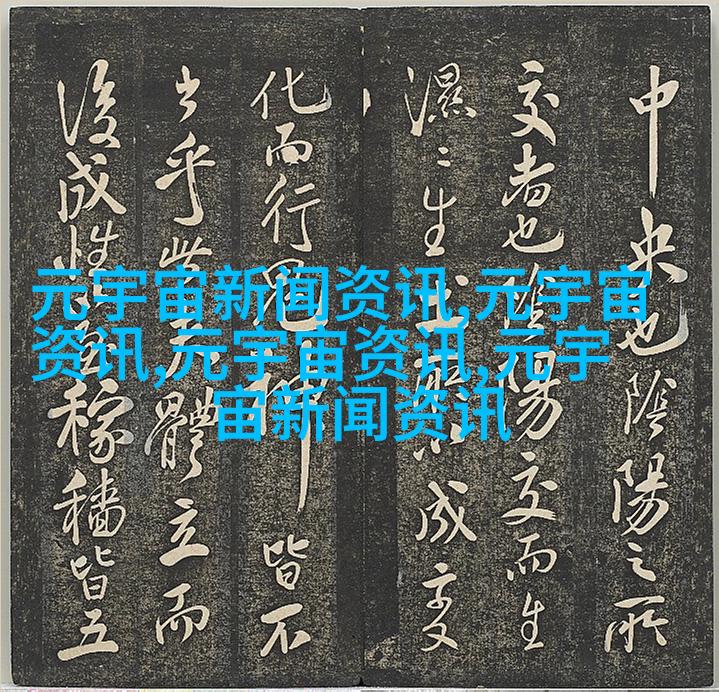 元宇宙新闻资讯,元宇宙
资讯,元宇宙资讯,元宇
宙新闻资讯
中央也陰陽之所
交者也陰陽交而生
濕〻生土成变
化而行鬼神皆不
出乎此體立而
後成性稼穡皆五